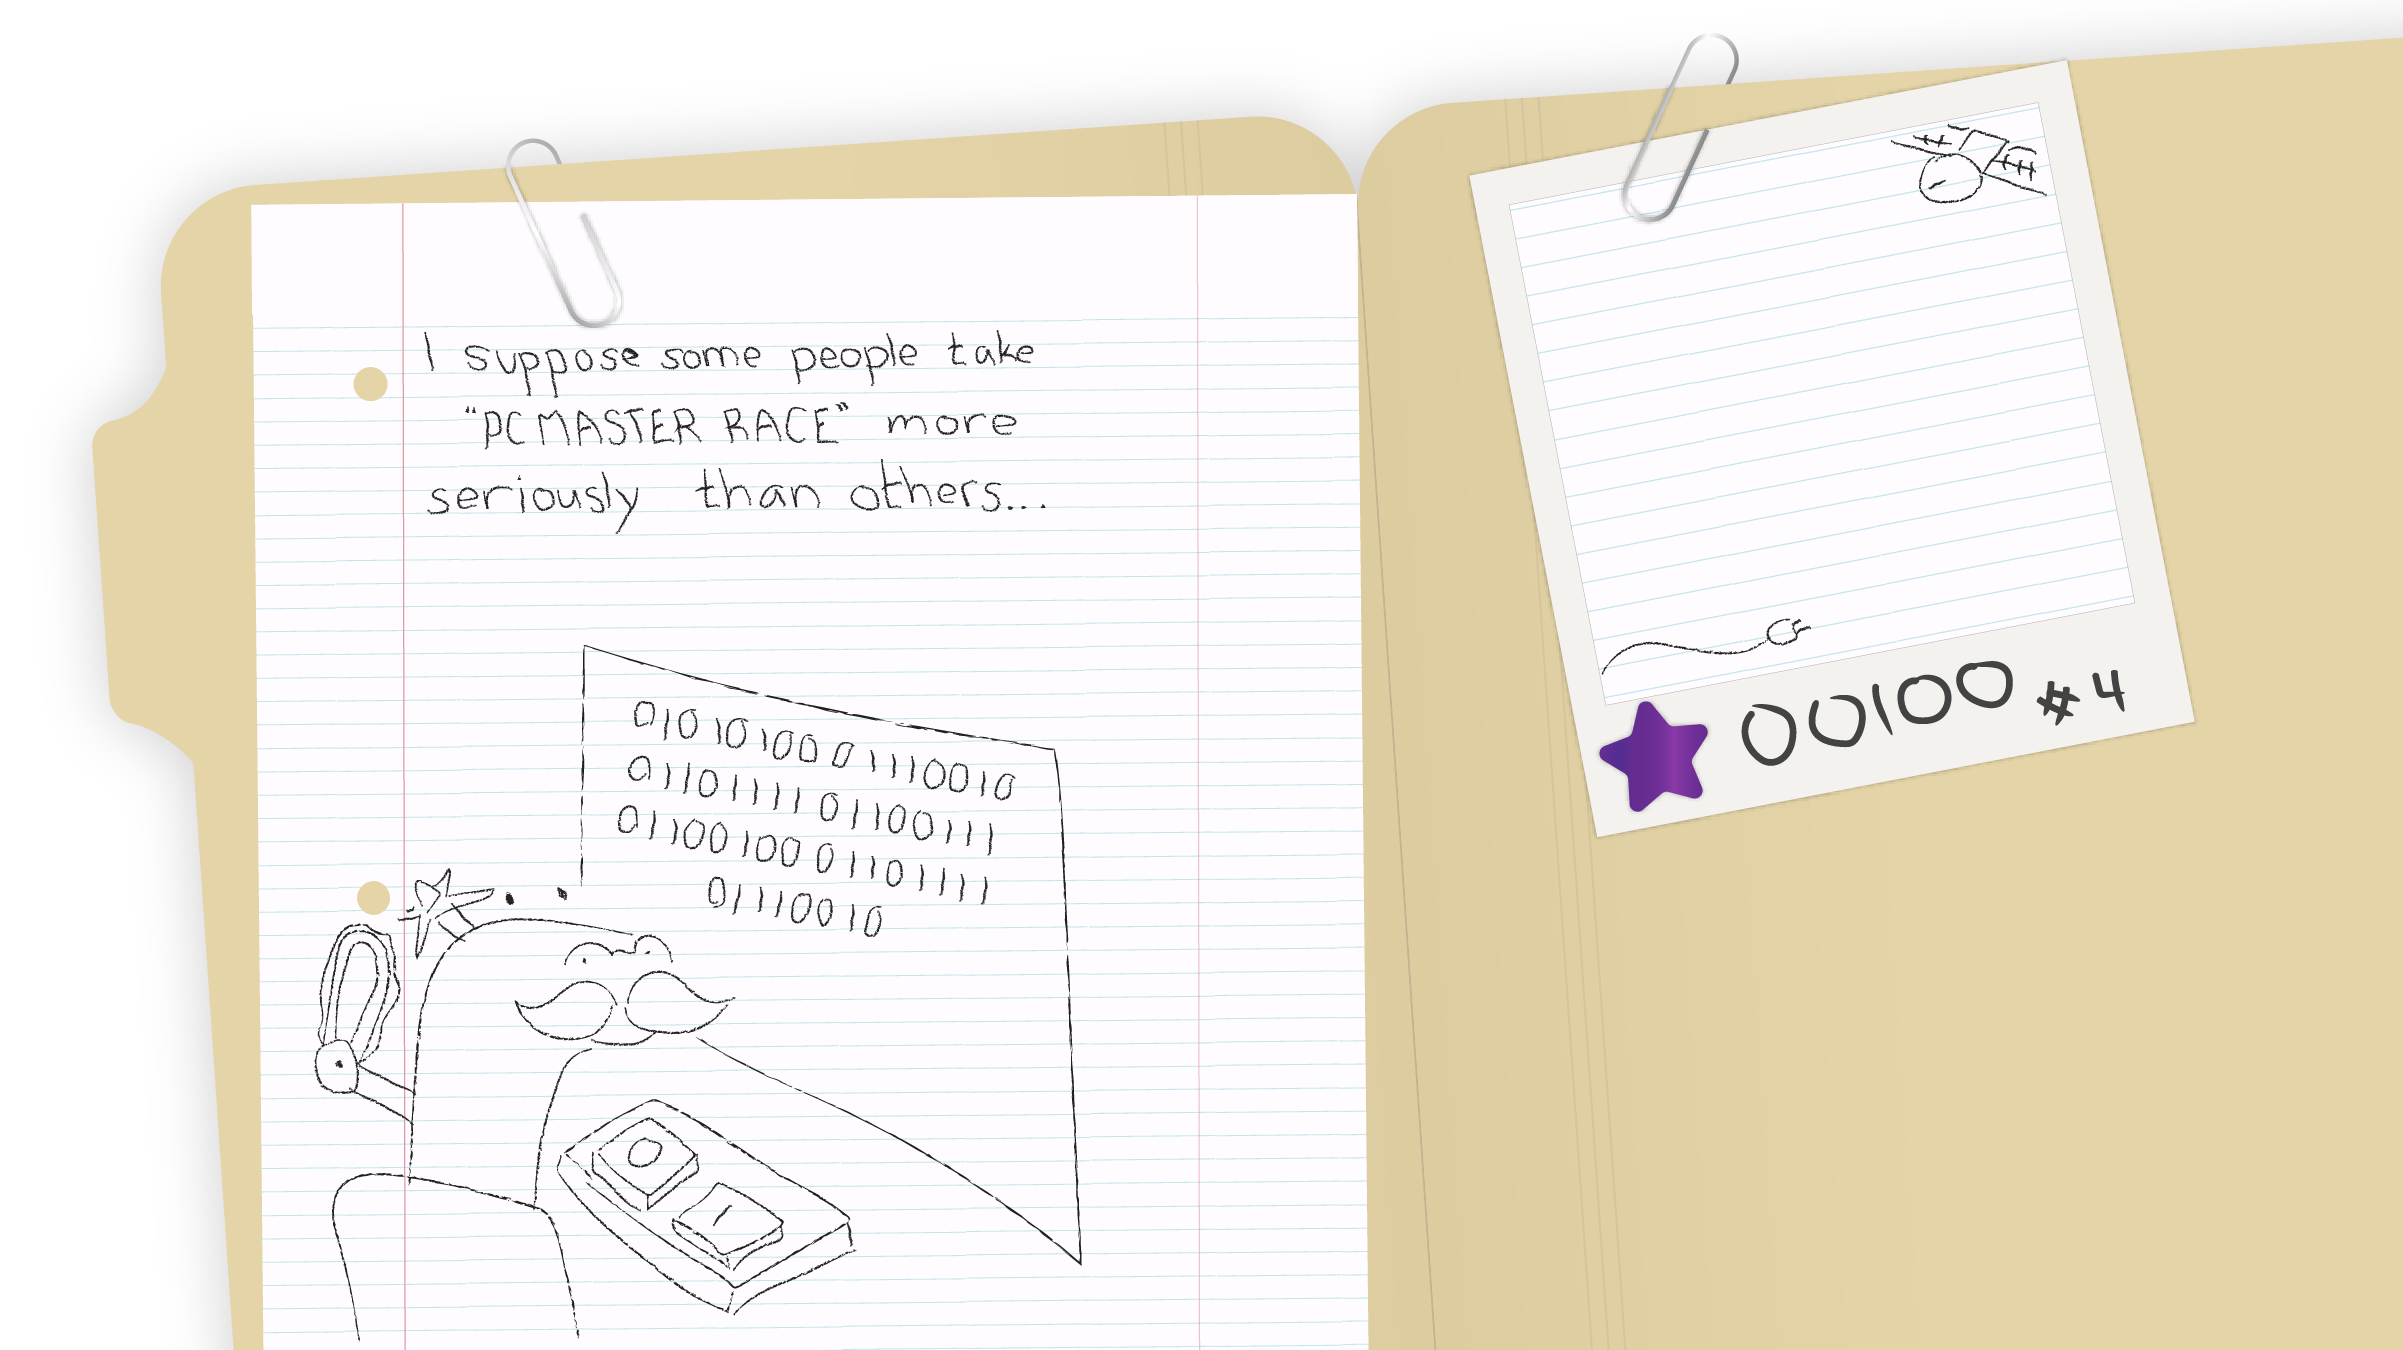 I suppose some people take
"PC MASTER RACE" more
seriously than others...
01010100 01110010
01101111 01100111
01100100 01101111
01110010
0
1
00100 #4